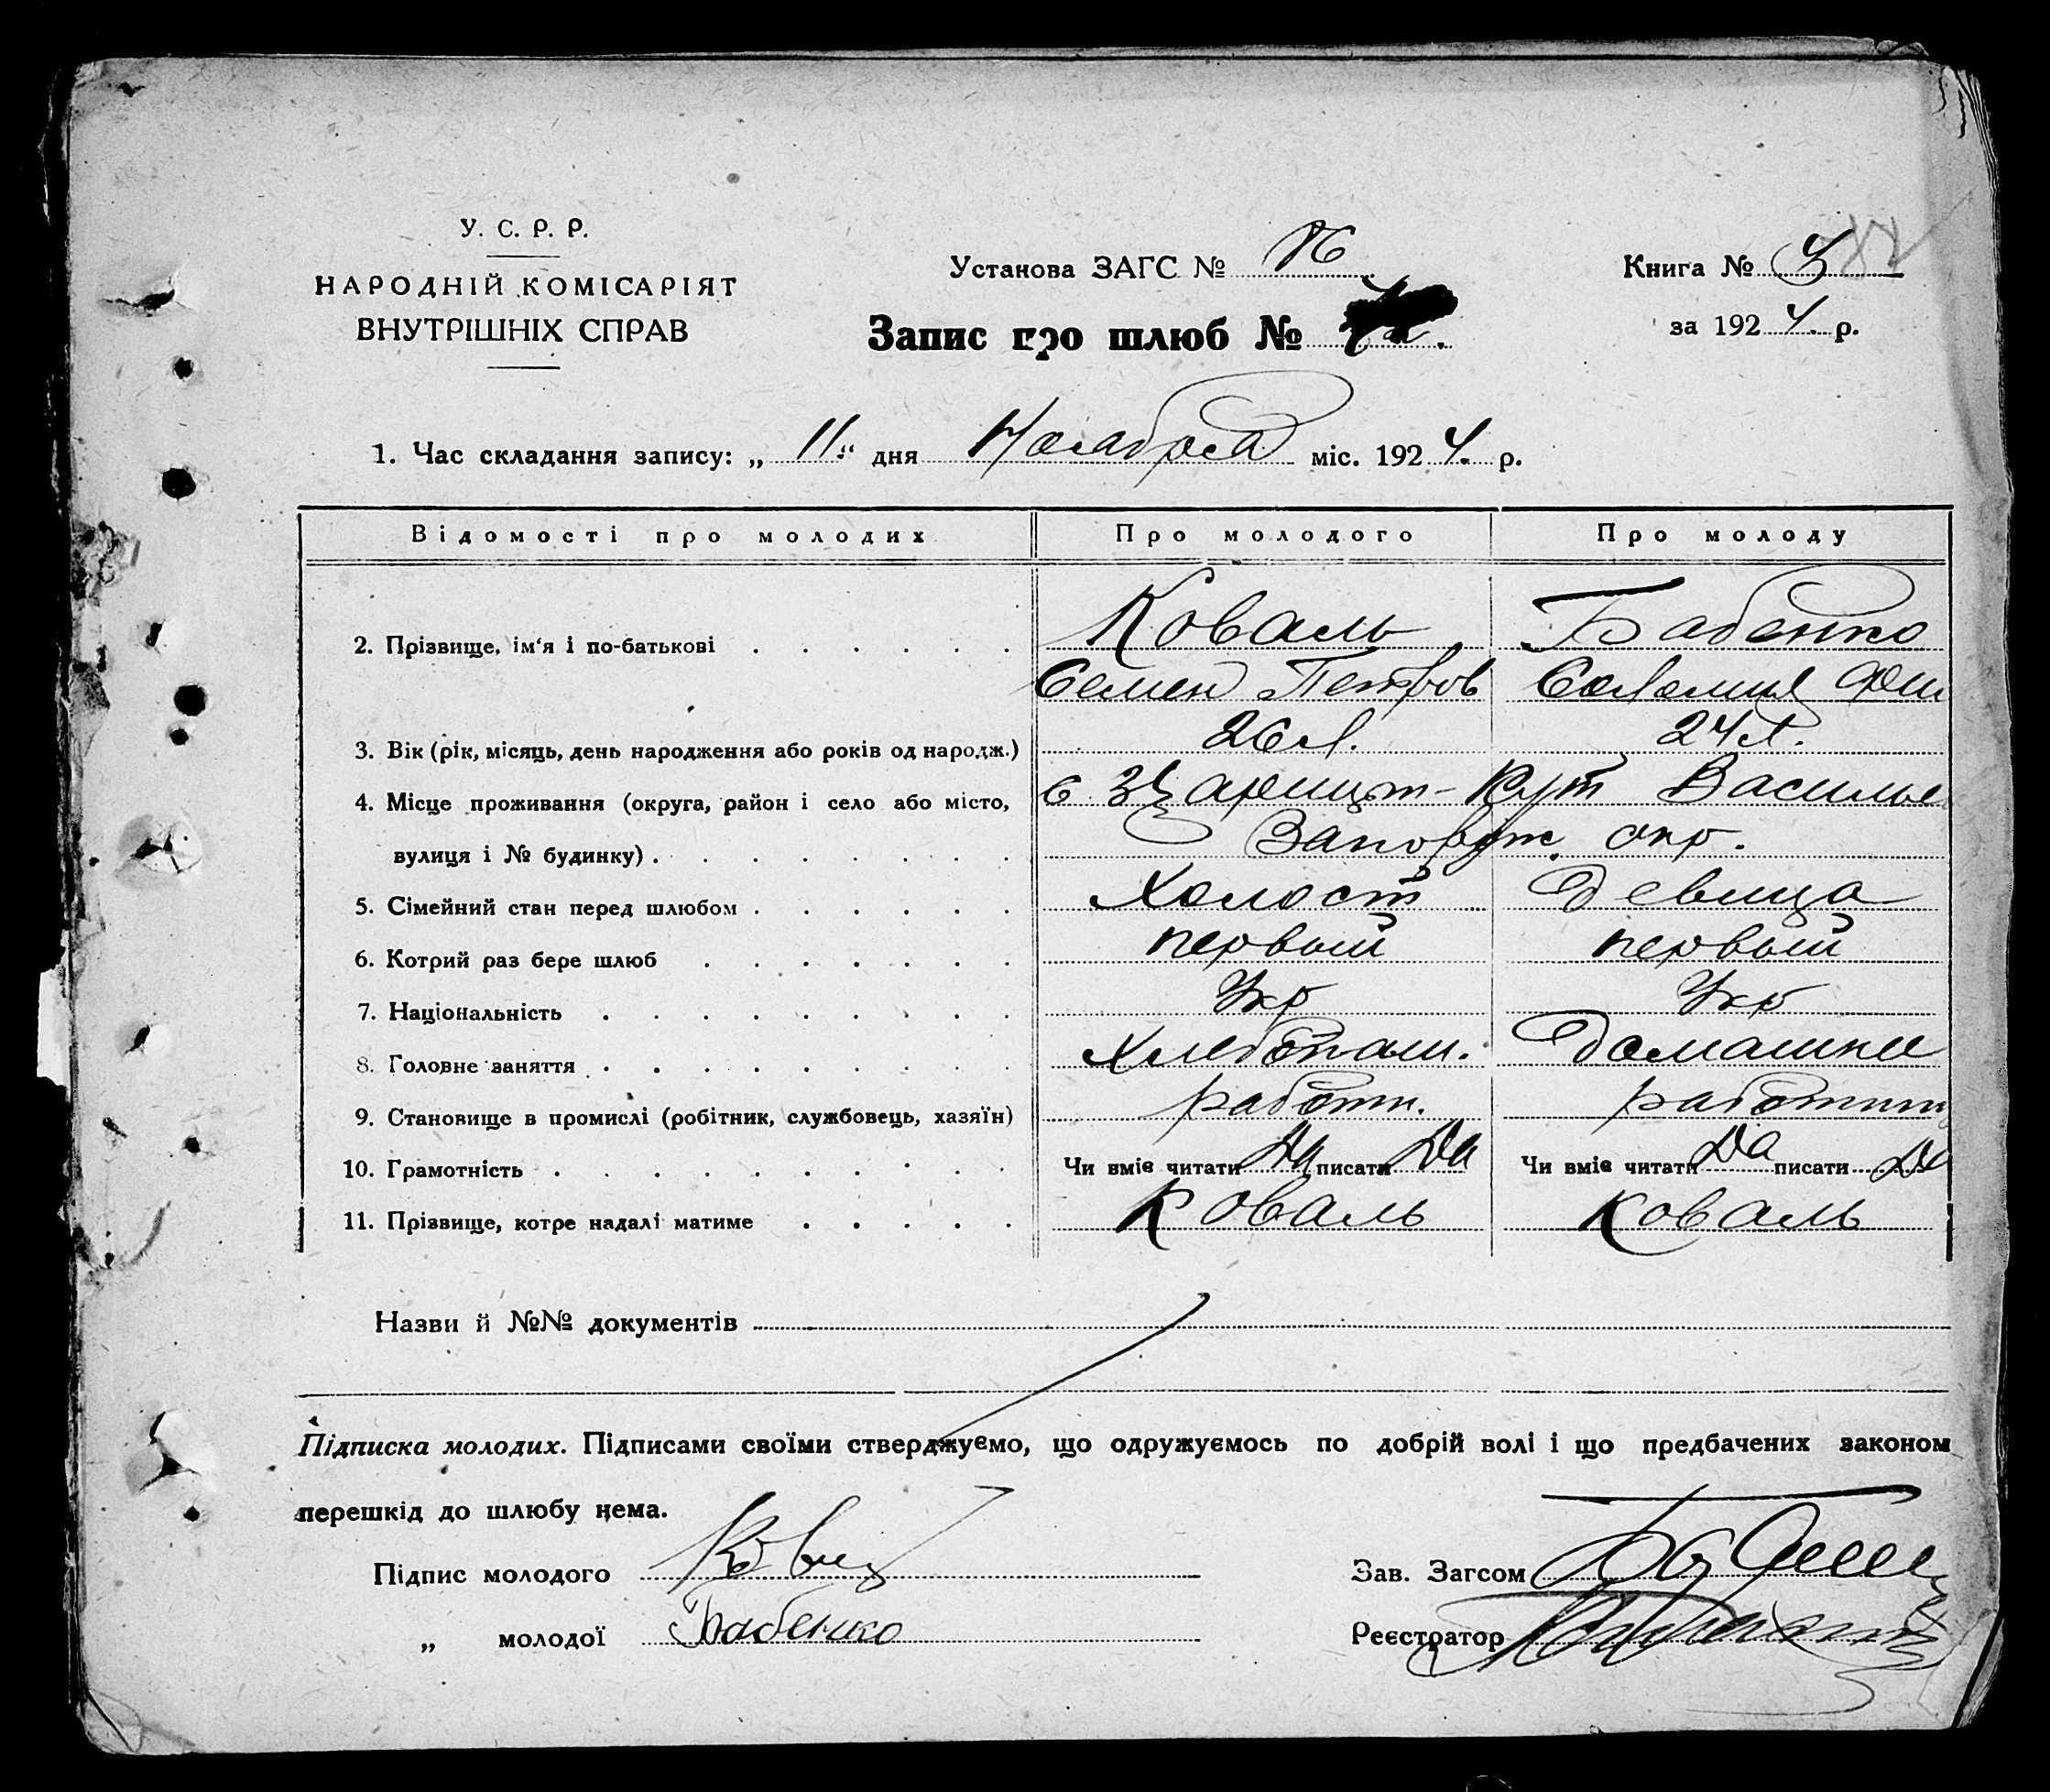 У. С. Р. Р.
НАРОДНІЙ КОМІСАРІЯТ
ВНУТРІШНІХ СПРАВ
Установа ЗАГС №
Запис про шлюб №
Книга №
за 1924. р.
1. Час складання запису: „ 11." дня Ноября міс. 1924. р.
Відомості про молодих Про молодого Про молоду
2. Прізвище, ім'я і по-батькові Коваль Бабенко
Семен Петров Саломия
3. Вік (рік, місяць, день народження або років од народж.) 26 л. 24 л.
4. Місце проживання (округа, район і село або місто, Кут Василье
вулиця і № будинку) Запорож. окр.
5. Сімейний стан перед шлюбом Холост Девица
6. Котрий раз бере шлюб первый первый
7. Національність Укр Укр
8. Головне заняття Хлебопаш. Домашнее
9. Становище в промислі (робітник, службовець, хазяїн) работн. работниц
10. Грамотність Чи вміє читати Да писати Да Чи вміє читати Да писати Да
11. Прізвище, котре надалі матиме Коваль Коваль
Назви й №№ документів
Підписка молодих. Підписами своїми стверджуємо, що одружуємось по добрій волі і що предбачених законом
перешкід до шлюбу нема.
Підпис молодого
Зав. Загсом
„ молодої Бабенко
Реєстратор